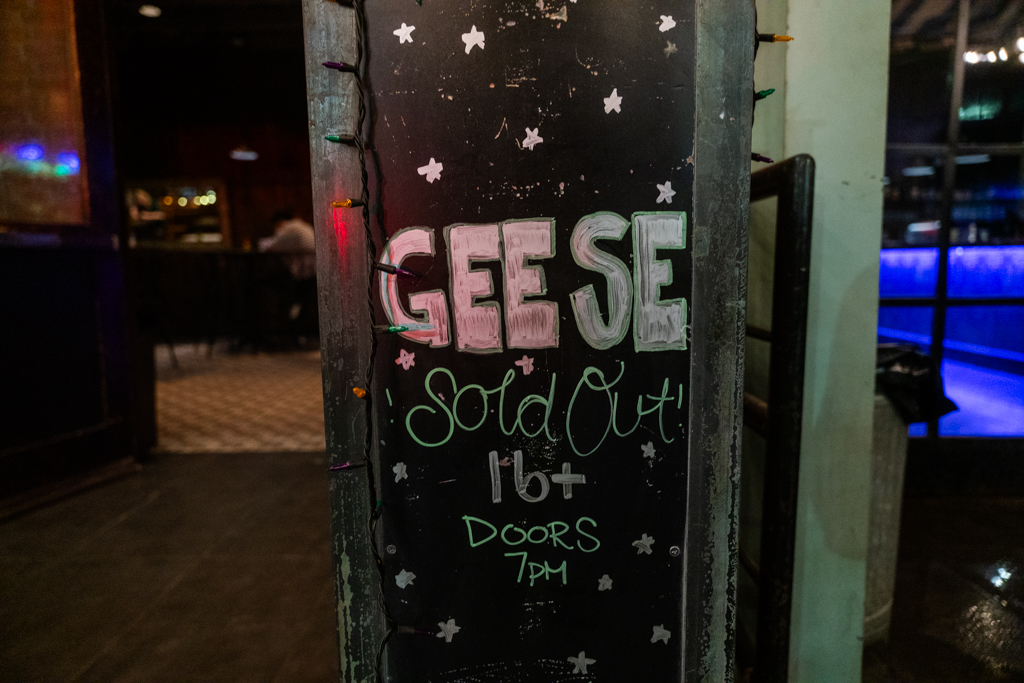 GEESE
'Sold Out'
16+
DOORS
7PM